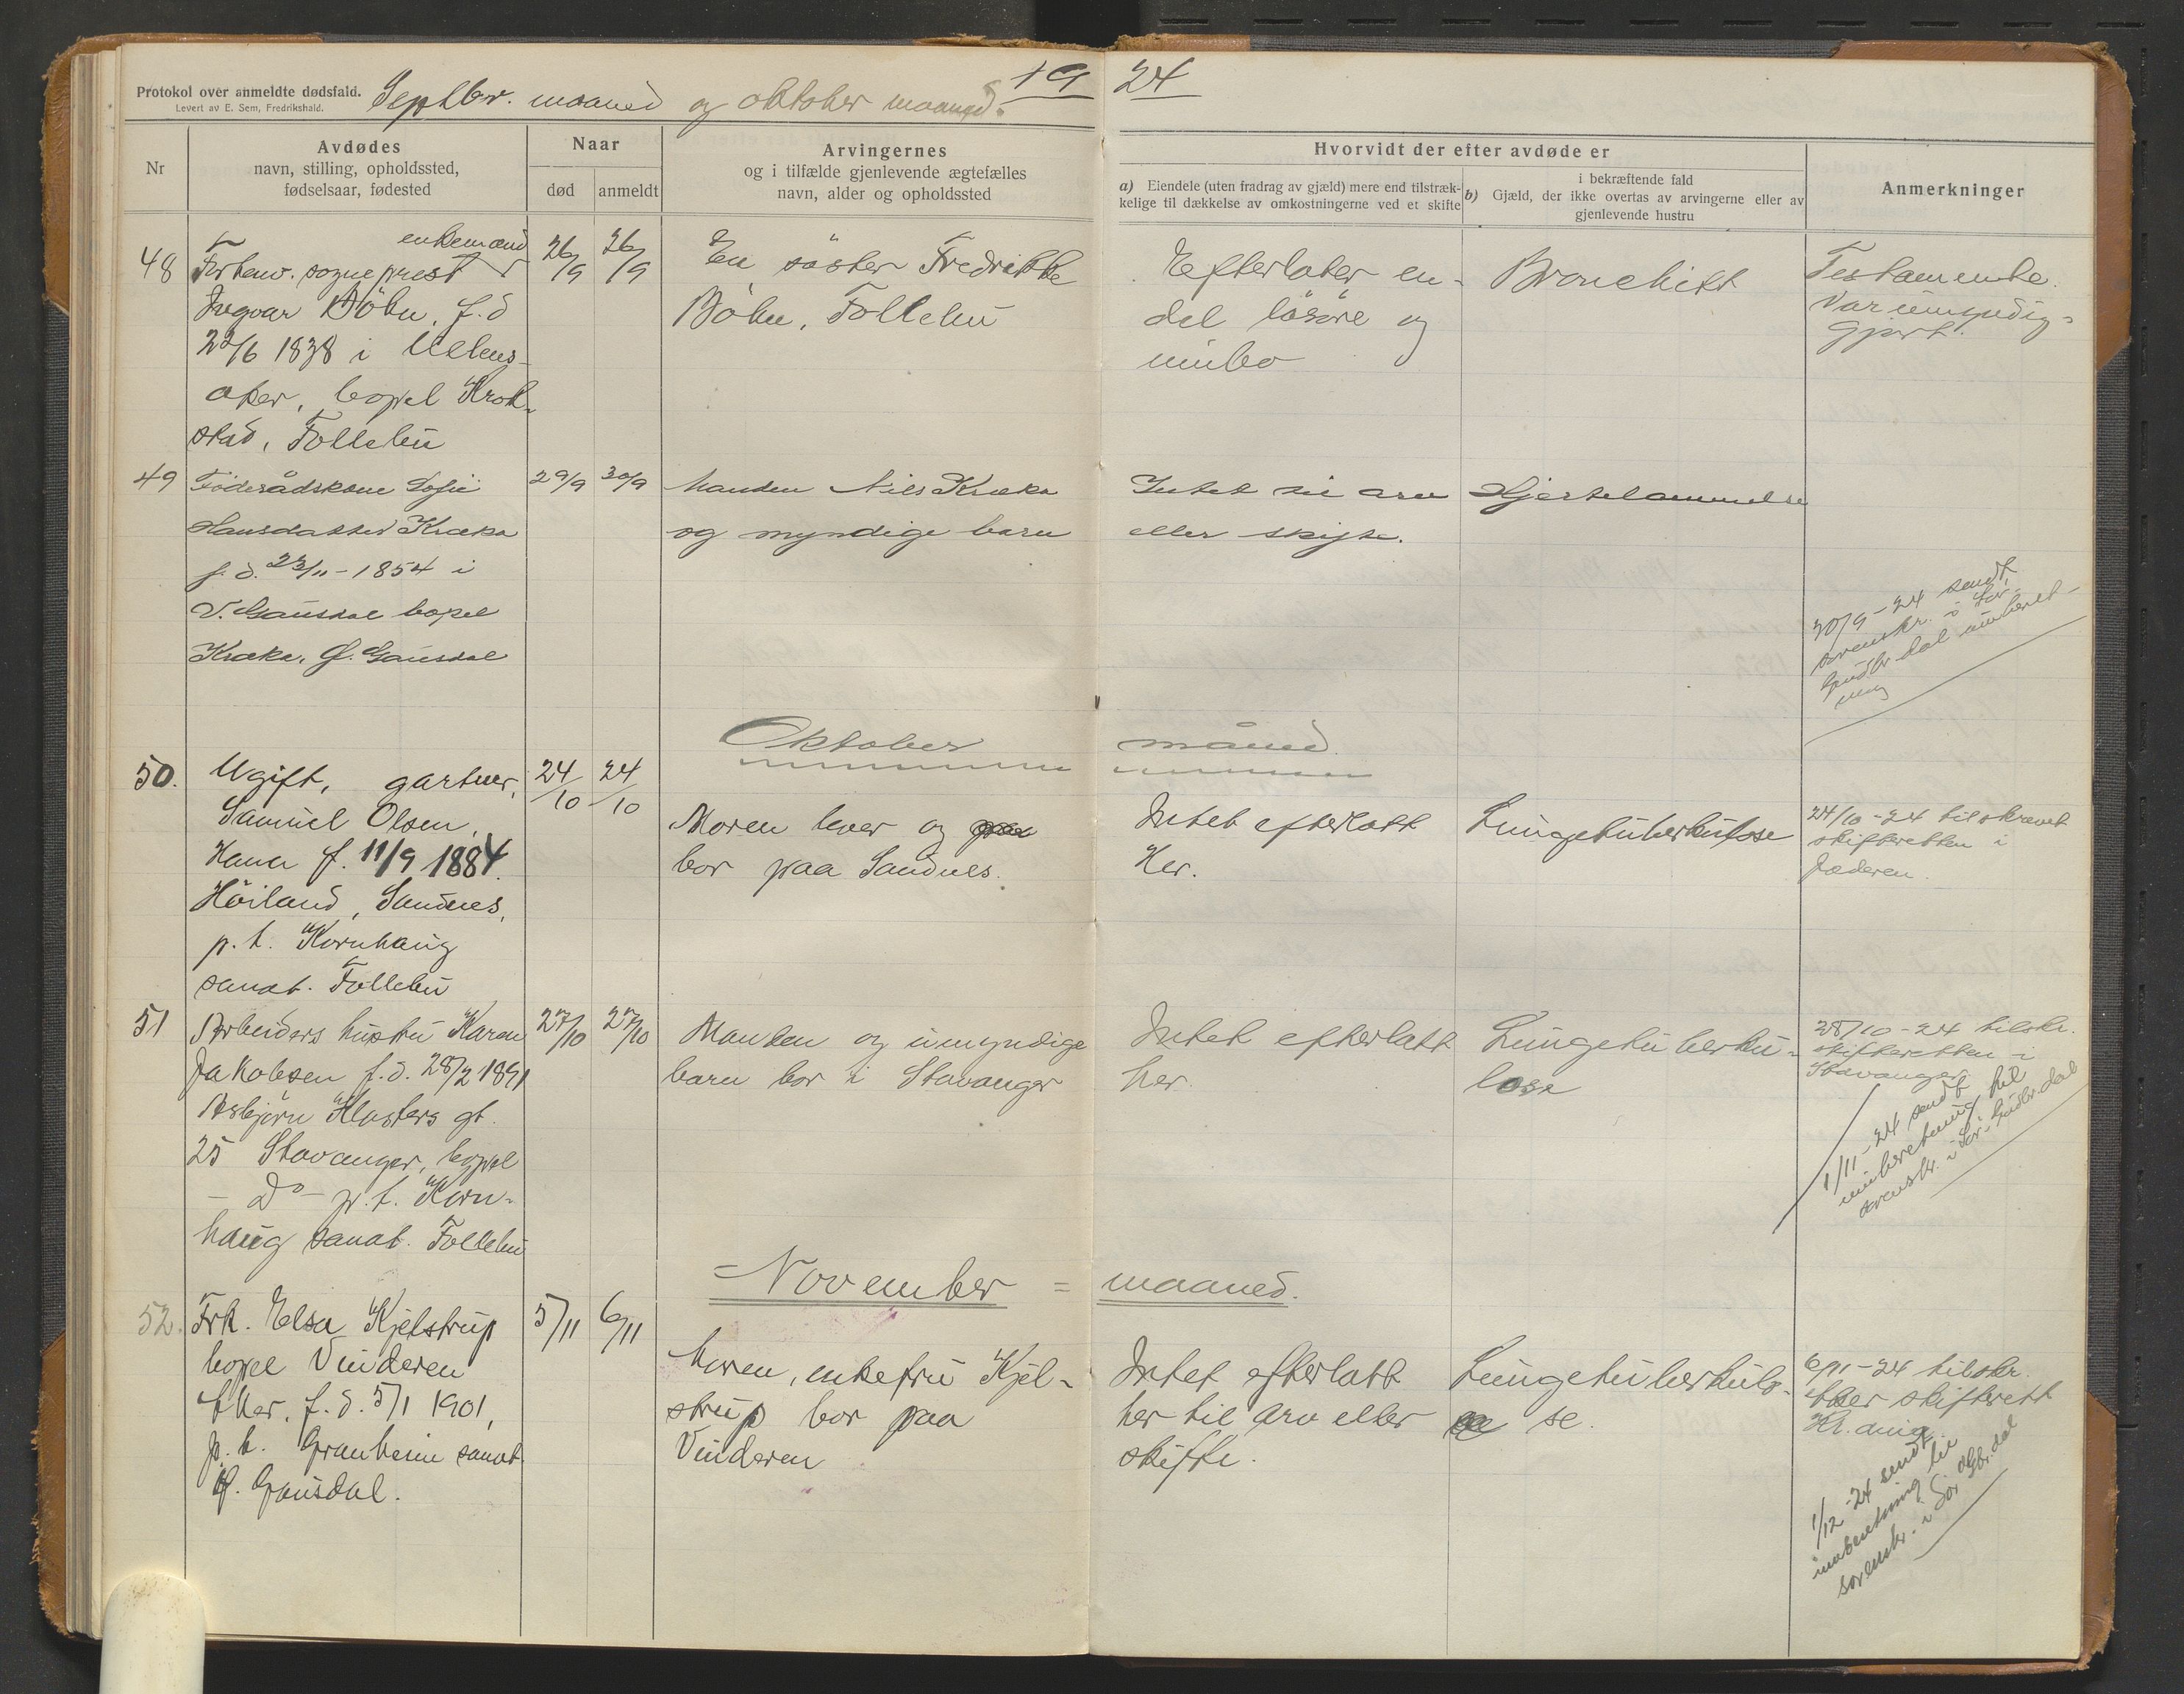 Protokol over anmeldte dødsfald.
Levert av E. Sem, Fredrikshald.
Septbr. maaned og oktober maaned.
19 24
Nr
Avdødes
navn, stilling, opholdssted,
fødselsaar, fødested
Naar
død
anmeldt
Arvingernes
og i tilfælde gjenlevende ægtefælles
navn, alder og opholdssted
Hvorvidt der efter avdøde er
a) Eiendele (uten fradrag av gjæld) mere end tilstræk-
kelige til dækkelse av omkostningerne ved et skifte
i bekræftende fald
b) Gjæld, der ikke overtas av arvingerne eller av
gjenlevende hustru
Anmerkninger
48
enkemand
Forhenv. sogneprest
Ingvar Bøhn, f.d
22/6 1838 i Ullens-
aker, bopel Krok-
stad, Follebu
26/9
26/9
En søster Fredrikke
Bøhn, Follebu
Efterlater en-
del løsøre og
innbo
Bronchitt
Testamente.
Var umyndig-
gjort.
49
Föderådskone Sofie
Hansdatter Kræka
f.d. 23/11-1854 i
V. Gausdal bopel
Kræka, Ø. Gausdal
29/9
30/9
Manden Nils Kræka
og myndige barn
Intet til arv
eller skifte.
Hjertelammelse
30/9-24 sendt
sorenskr. i Sør-
Gudbr.dal innberet-
ning
Oktober måned.
50.
Ugift, gartner,
Samuel Olsen,
Hana f. 11/9 1884.
Høiland, Sandnes,
p.t. Kornhaug
sanat. Follebu
24/10
24/10
Moren lever og
bor paa Sandnes.
Intet efterlatt
her.
Lungetuberkulose
24/10-24 tilskrevet
skifteretten i
Jæderen.
51
Arbeiders hustru Karen
Jakobsen f.d. 28/2 1891
Asbjørn Klosters gt.
25 Stavanger, bopel
- Do - p.t. Korn-
haug sanat. Follebu
27/10
27/10
Manden og umyndige
barn bor i Stavanger
Intet efterlatt
her.
Lungetuberku-
lose
28/10-24 tilskr.
skifteretten i
Stavanger
1/11-24 sendt
innberetning til
sorenskr. i Sør-Gudbr.dal
= November = maaned.
52.
Frk. Elsa Kjelstrup
bopel Vinderen
Aker, f.d. 5/1 1901,
p.t. Granheim sanat.
Ø. Gausdal.
5/11
6/11
Moren, enkefru Kjel-
strup bor paa
Vinderen
Intet efterlatt
her til arv eller
skifte.
Lungetuberkulo-
se.
6/11-24 tilskr.
Aker skifterett
Kr.ania.
1/12-24 sendt
innberetning til
sorenskr. i Sør Gbr.dal